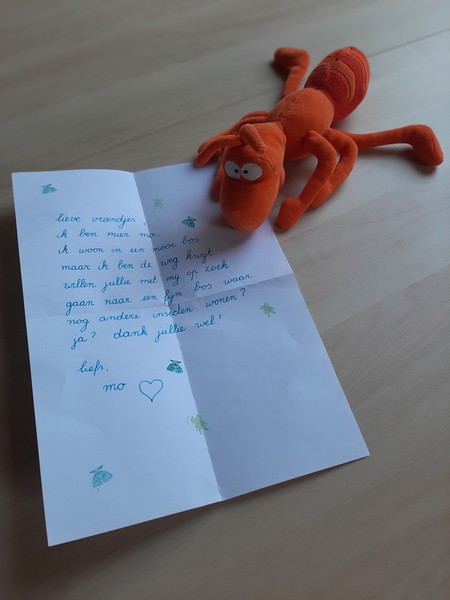 lieve vriendjes,
ik ben mier mo.
ik woon in een mooi bos
maar ik ben de weg kwijt
willen jullie met mij op zoek
gaan naar een fijn bos waar
nog andere insecten wonen?
ja? dank jullie wel!
liefs,
mo